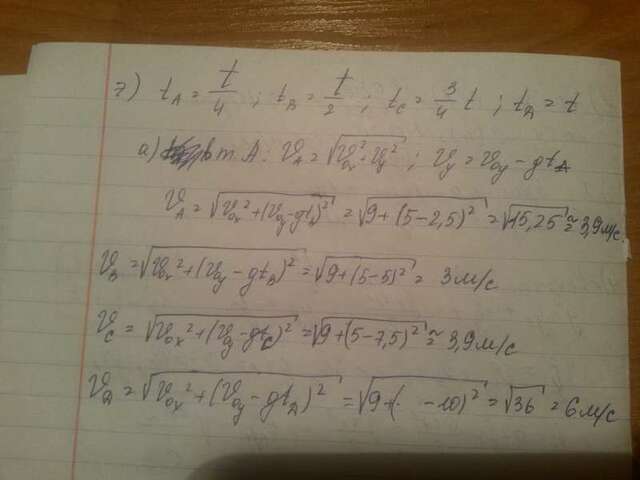 7) t_A = t/4 ; t_B = t/2 ; t_C = 3/4 t ; t_D = t
а) в т. А: V_A = √(V_ox² + V_y²) ; V_y = V_oy - gt_A
V_A = √(V_ox² + (V_oy - gt_A)²) = √(9 + (5 - 2,5)²) = √15,25 ≈ 3,9 м/с.
V_B = √(V_ox² + (V_oy - gt_B)²) = √(9 + (5 - 5)²) = 3 м/с
V_C = √(V_ox² + (V_oy - gt_C)²) = √(9 + (5 - 7,5)²) ≈ 3,9 м/с
V_D = √(V_ox² + (V_oy - gt_D)²) = √(9 + ( - 10)²) = √36 = 6 м/с